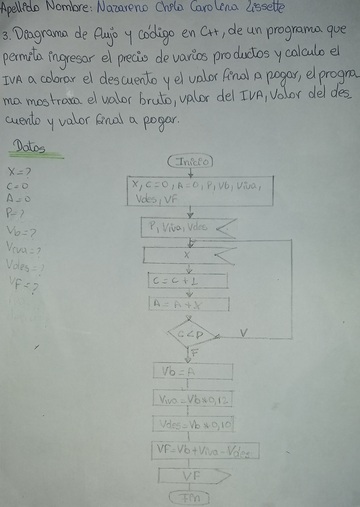 Apellido Nombre: Nazareno Chola Carolina Lissette
3. Diagrama de flujo y código en C++, de un programa que
permita ingresar el precio de varios productos y calculo el
IVA a cobrar el descuento y el valor final a pagar, el progra
ma mostrara el valor bruto, valor del IVA, Valor del des
cuento y valor final a pagar.
Datos
X=?
C=0
A=0
P=?
Vb=?
Viva=?
Vdes=?
VF=?
Inicio
X, C=0, A=0, P, Vb, Viva,
Vdes, VF
P, Viva, Vdes
X
C = C + 1
A = A + X
C < P
V
F
Vb = A
Viva = Vb * 0,12
Vdes = Vb * 0,10
VF = Vb + Viva - Vdes
VF
Fin